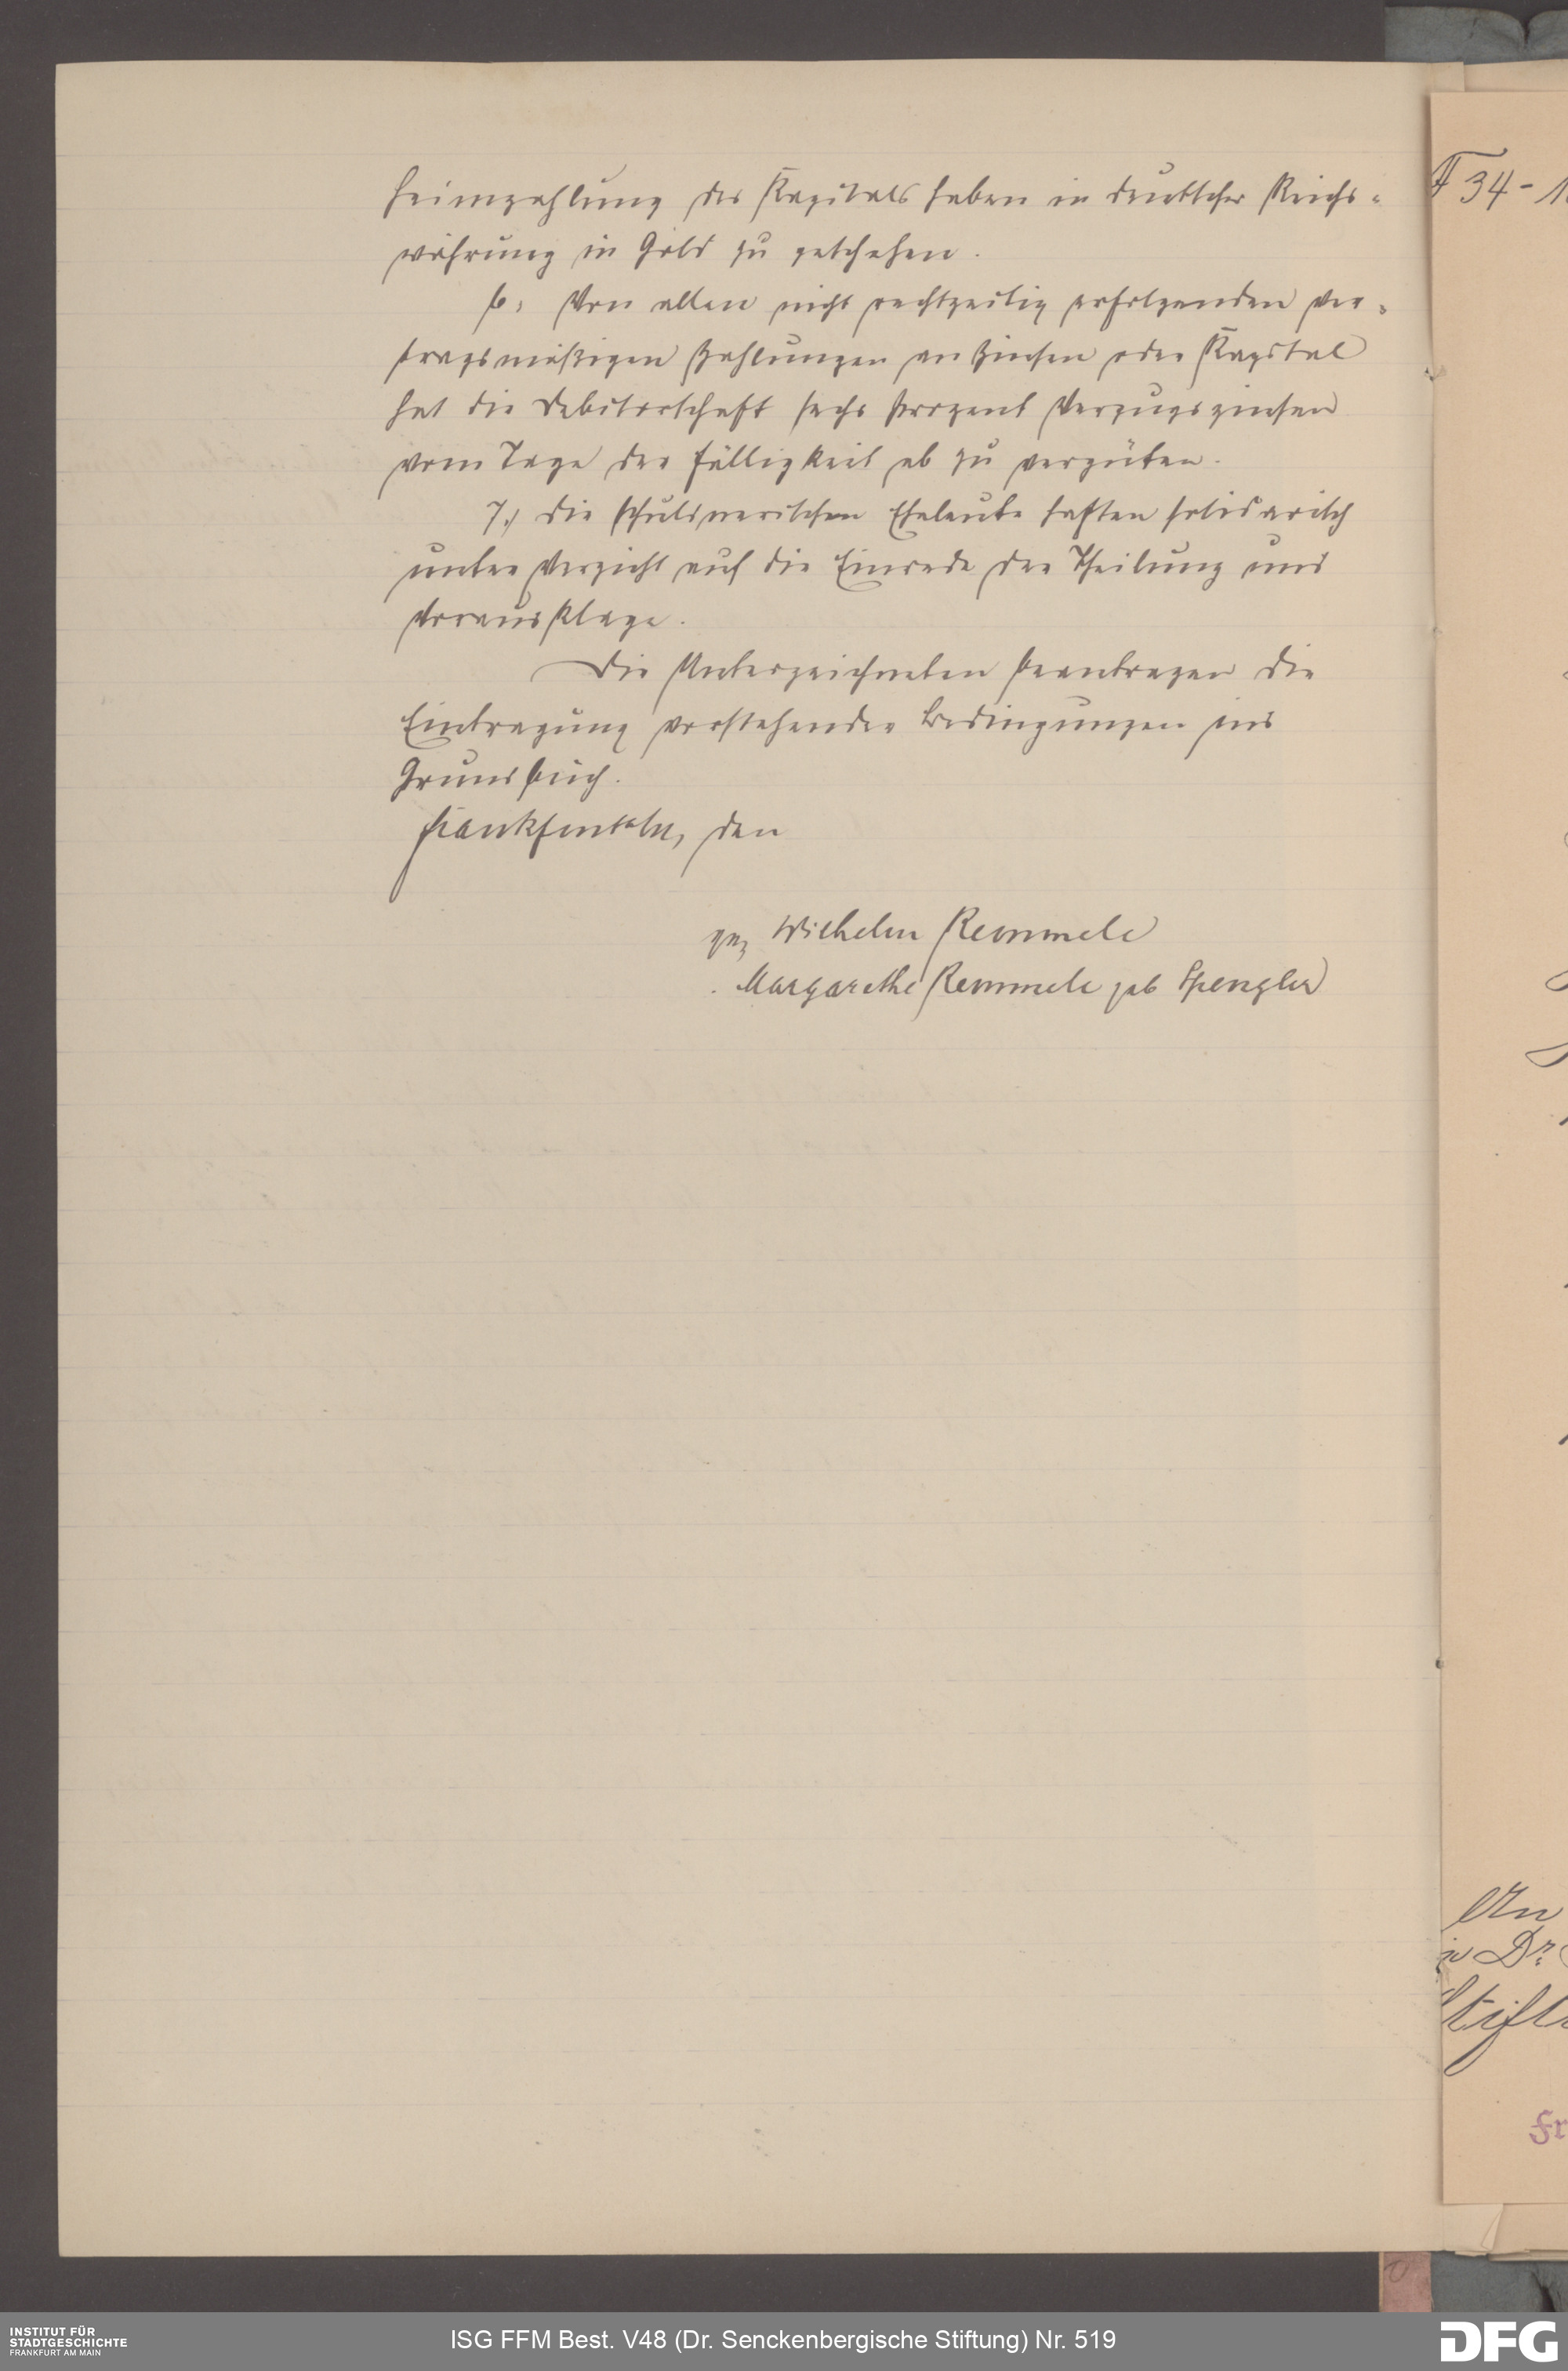 heimzahlung des Kapitals haben in deutscher Reichs-
währung in Gold zu geschehen.
6, Von allen nicht rechtzeitig erfolgenden ver-
tragsmäßigen Zahlungen an Zinsen oder Kapital
hat die Debitorschaft sechs Prozent Verzugszinsen
vom Tage der Fälligkeit ab zu vergüten.
7.) Die schuldnerischen Eheleute haften solidarisch
unter Verzicht auf die Einrede der Theilung und
Vorausklage.
Die Unterzeichneten beantragen die
Eintragung vorstehender Bedingungen ins
Grundbuch.
Frankfurt a/M, den
gez Wilhelm Remmele
Margarethe Remmele geb Spengler
F 34-
An
Dr.
Fr
INSTITUT FÜR
STADTGESCHICHTE
FRANKFURT AM MAIN
ISG FFM Best. V48 (Dr. Senckenbergische Stiftung) Nr. 519
DFG